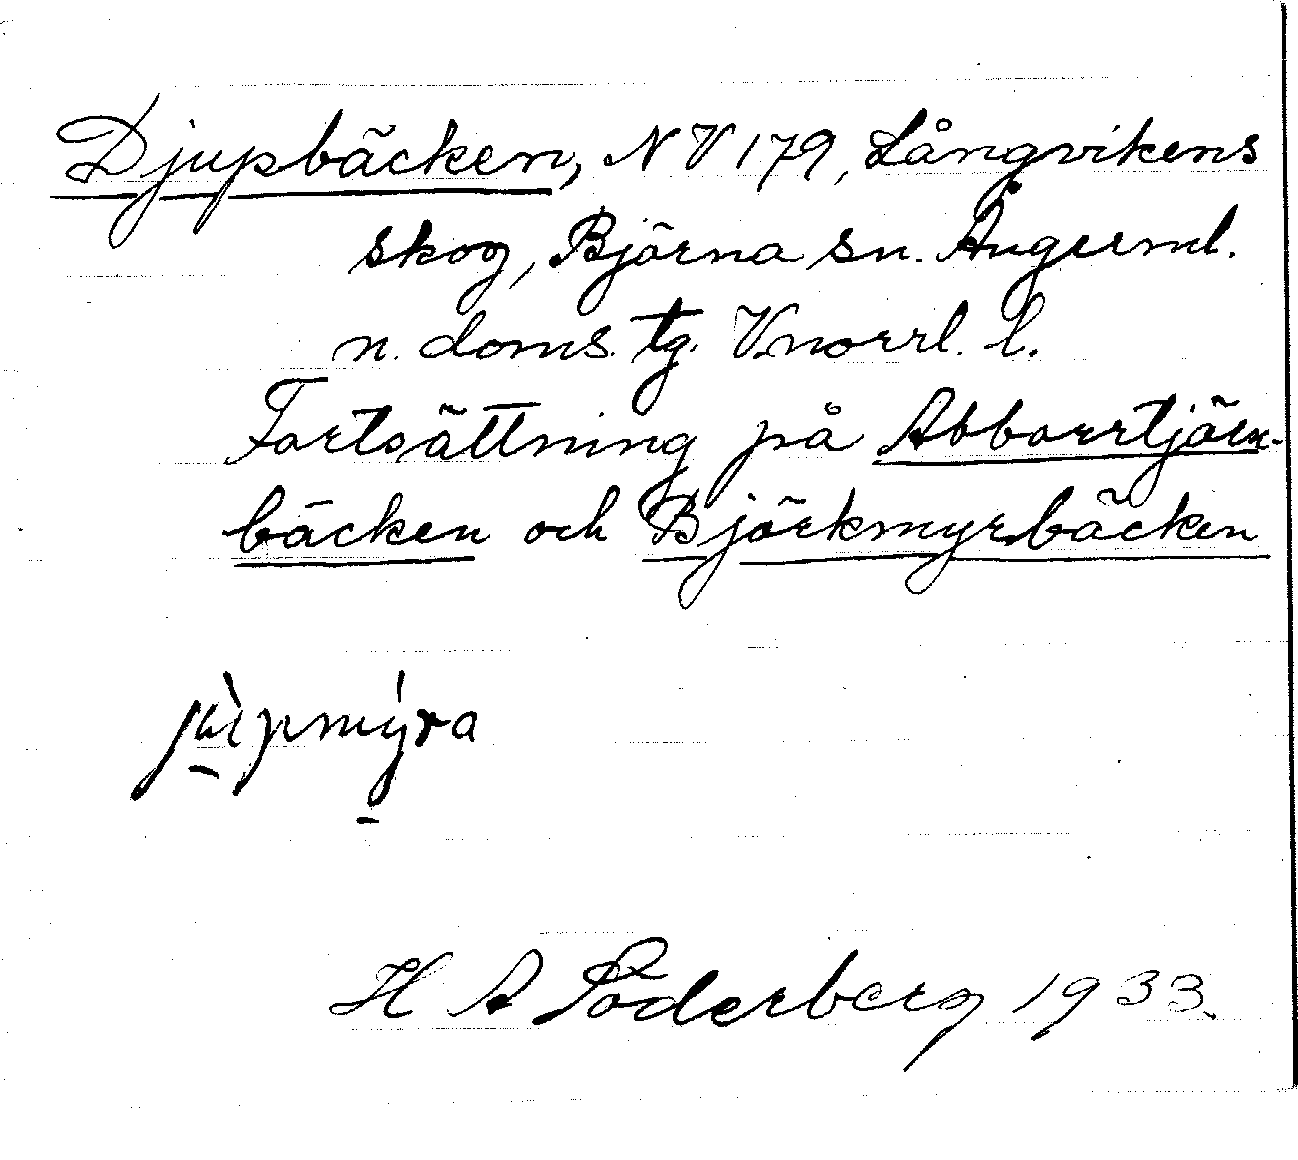 Djupbäcken, NV 179, Långvikens
skog, Björna sn. Ångerml.
n. doms. tg. Vnorrl. l.
Fortsättning på Abborrtjärn-
bäcken och Björkmyrbäcken
H A Söderberg 1933.